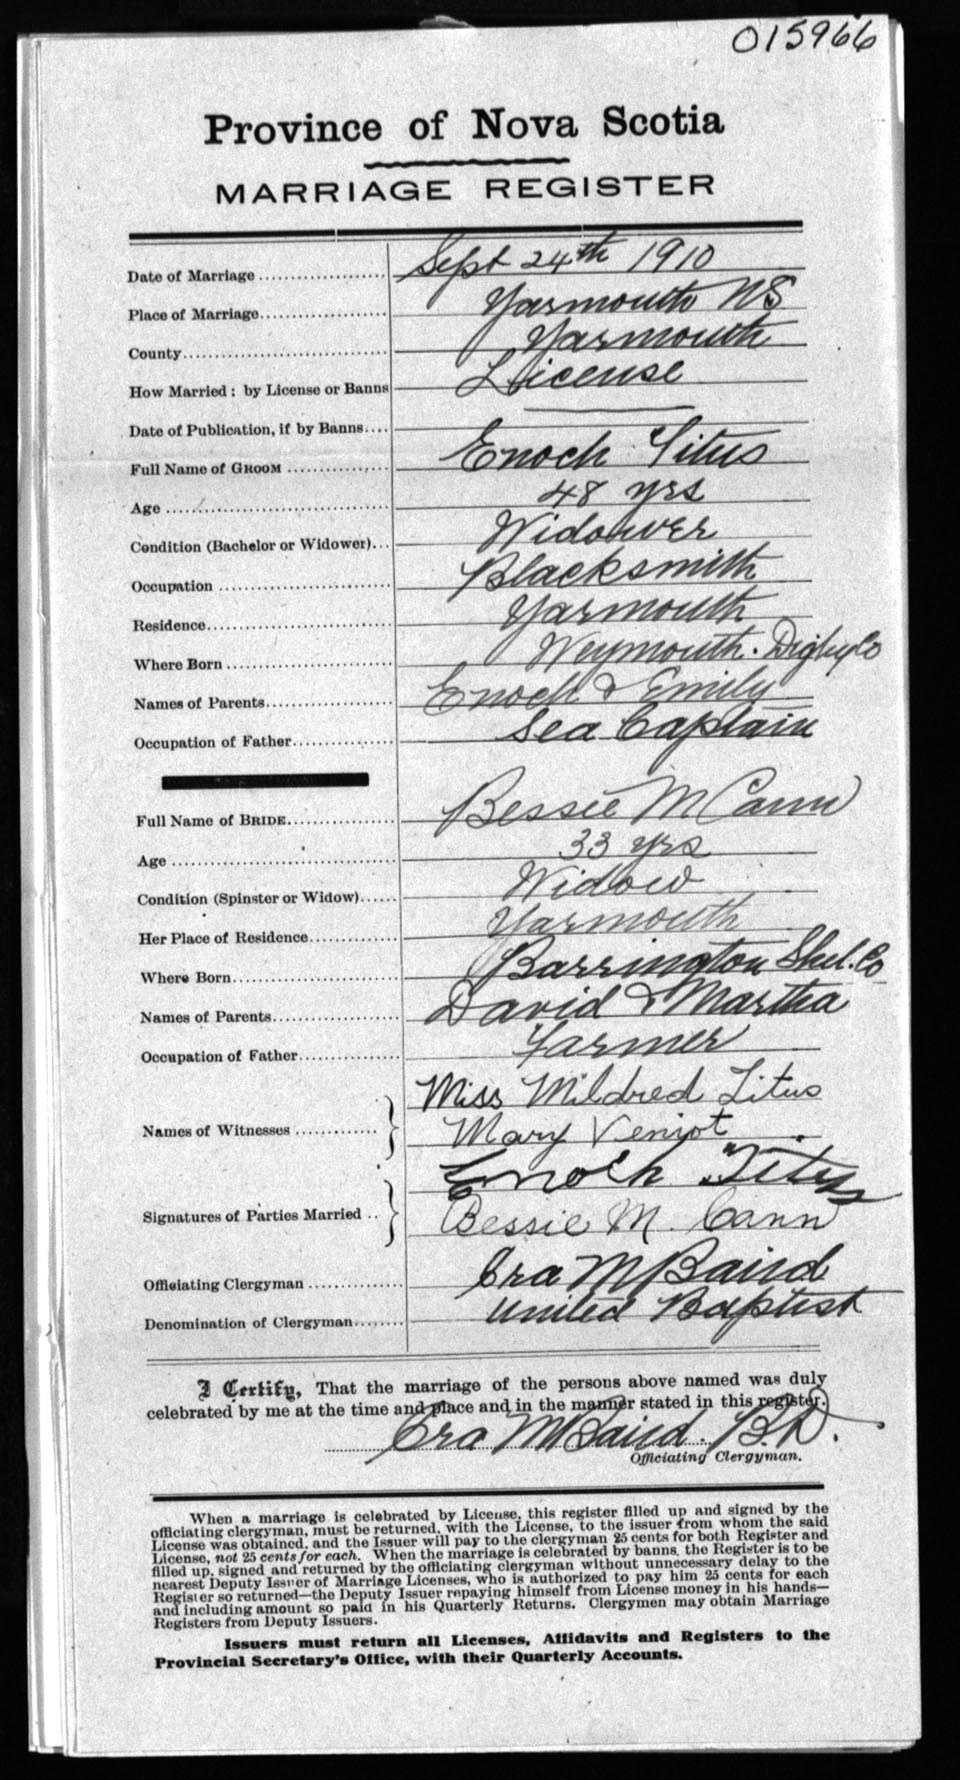 015966
Province of Nova Scotia
MARRIAGE REGISTER
Date of Marriage .................... Sept 24th 1910
Place of Marriage.................... Yarmouth NS
County.................... Yarmouth
How Married: by License or Banns License
Date of Publication, if by Banns....
Full Name of GROOM .................... Enoch Titus
Age .................... 48 yrs
Condition (Bachelor or Widower)... Widower
Occupation .................... Blacksmith
Residence.................... Yarmouth
Where Born .................... Weymouth. Digby Co
Names of Parents.................... Enoch & Emily
Occupation of Father.................... Sea Captain
Full Name of BRIDE.................... Bessie M Cann
Age .................... 33 yrs
Condition (Spinster or Widow)...... Widow
Her Place of Residence.................... Yarmouth
Where Born.................... Barrington Shel. Co
Names of Parents.................... David & Martha
Occupation of Father.................... Farmer
Miss Mildred Titus
Names of Witnesses ....................
Mary Veniot
Enoch Titus
Signatures of Parties Married ..
Bessie M. Cann
Officiating Clergyman .................... Ora M Baird
Denomination of Clergyman........ United Baptist
I Certify, That the marriage of the persons above named was duly
celebrated by me at the time and place and in the manner stated in this register.
Ora M Baird. B.D.
Officiating Clergyman.
When a marriage is celebrated by License, this register filled up and signed by the
officiating clergyman, must be returned, with the License, to the issuer from whom the said
License was obtained, and the Issuer will pay to the clergyman 25 cents for both Register and
License, not 25 cents for each. When the marriage is celebrated by banns, the Register is to be
filled up, signed and returned by the officiating clergyman without unnecessary delay to the
nearest Deputy Issuer of Marriage Licenses, who is authorized to pay him 25 cents for each
Register so returned—the Deputy Issuer repaying himself from License money in his hands—
and including amount so paid in his Quarterly Returns. Clergymen may obtain Marriage
Registers from Deputy Issuers.
Issuers must return all Licenses, Affidavits and Registers to the
Provincial Secretary's Office, with their Quarterly Accounts.